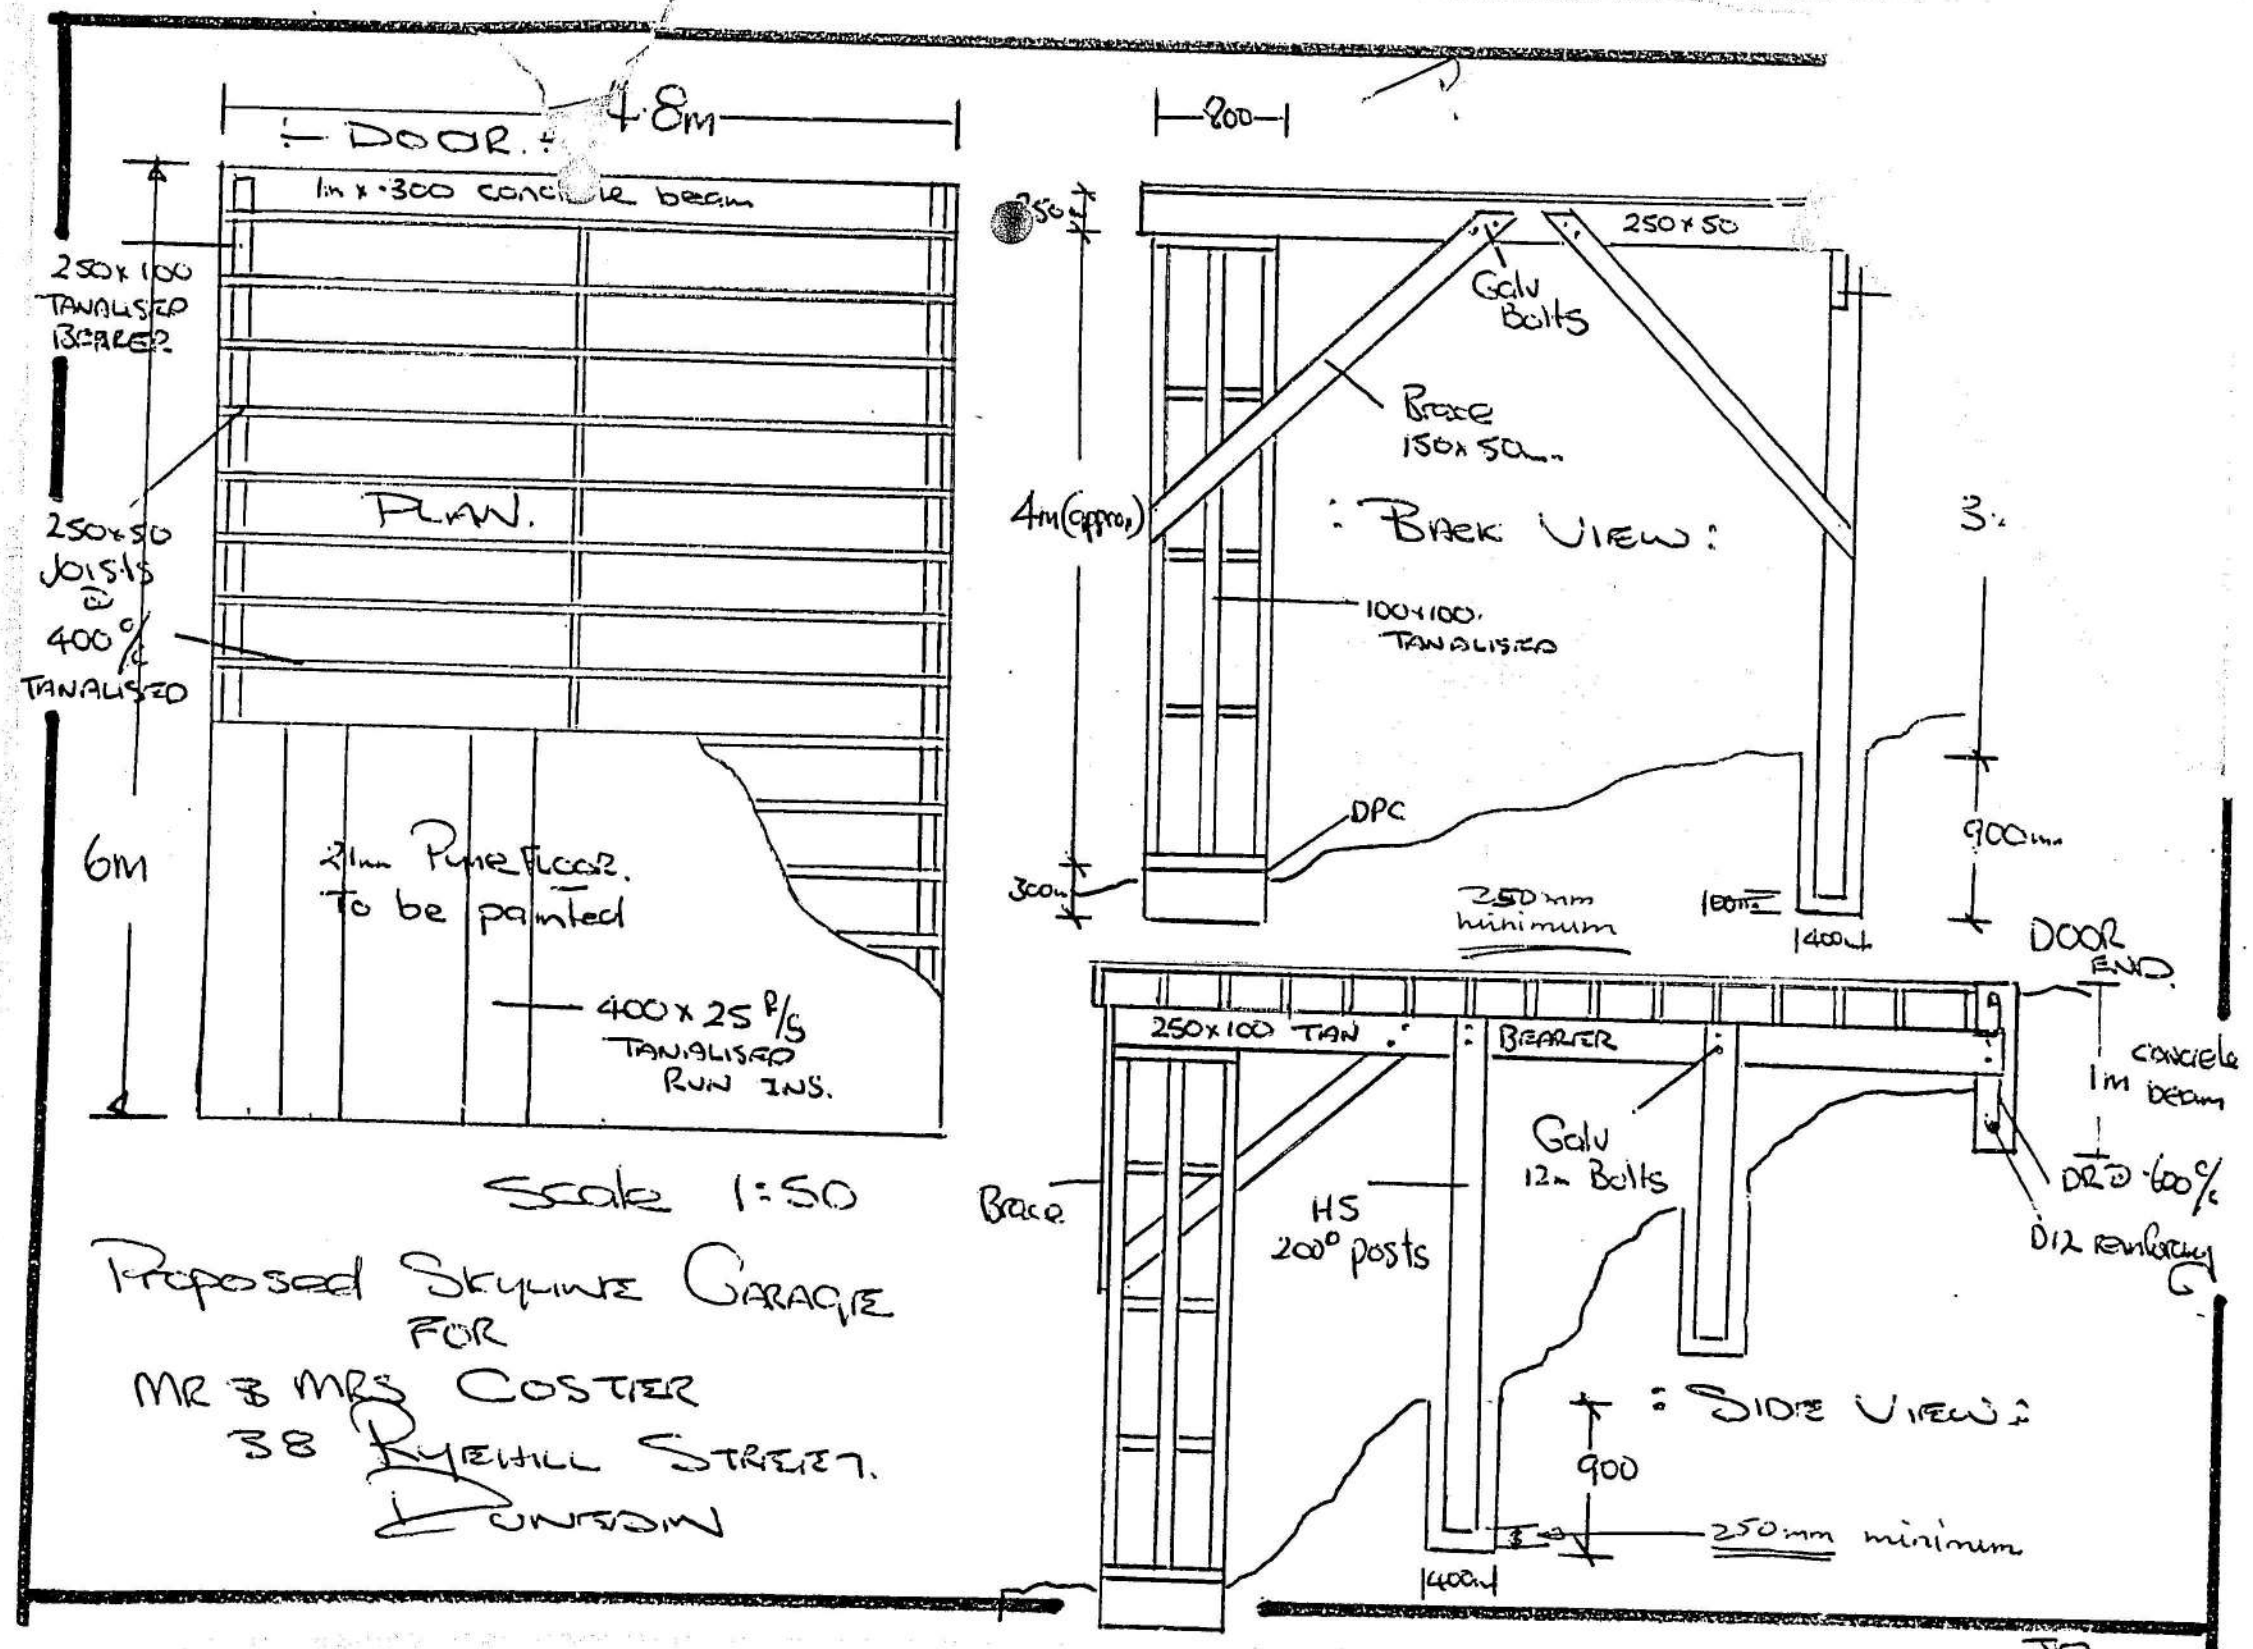 4.8m
:- DOOR. :
1m x .300 concrete beam
250x100
TANALISED
BEARER
250x50
JOISTS
@
400 c/c
TANALISED
PLAN.
6m
To be painted
P/S
TANALISED
RUN INS.
Scale 1:50
Proposed SKYLINE GARAGE
FOR
MR & MRS COSTIER
38 RYEHILL STREET.
DUNEDIN
800
250x50
Galv
Bolts
Brace
150x50mm
4m (approx)
: BACK VIEW :
100x100.
TANALISED
DPC
300m
250mm
minimum
100m
400m
900mm
DOOR
END.
250x100 TAN BEARER
1m
concrete
beam
Galv
12m Bolts
Brace
HS
200º posts
600 c/c
D12 reinforcing
: SIDE VIEW :
900
250mm minimum
400m